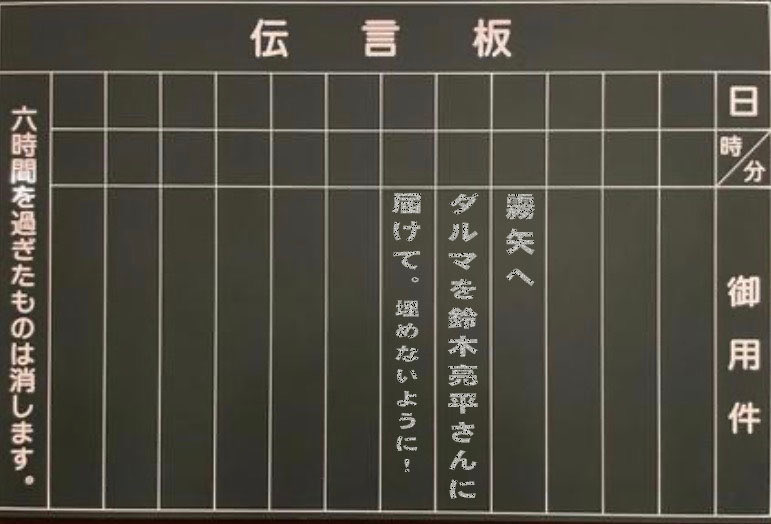 伝言板
日
時/分
御用件
霧矢へ
ダルマを鈴木亮平さんに
届けて。埋めないように!
六時間を過ぎたものは消します。